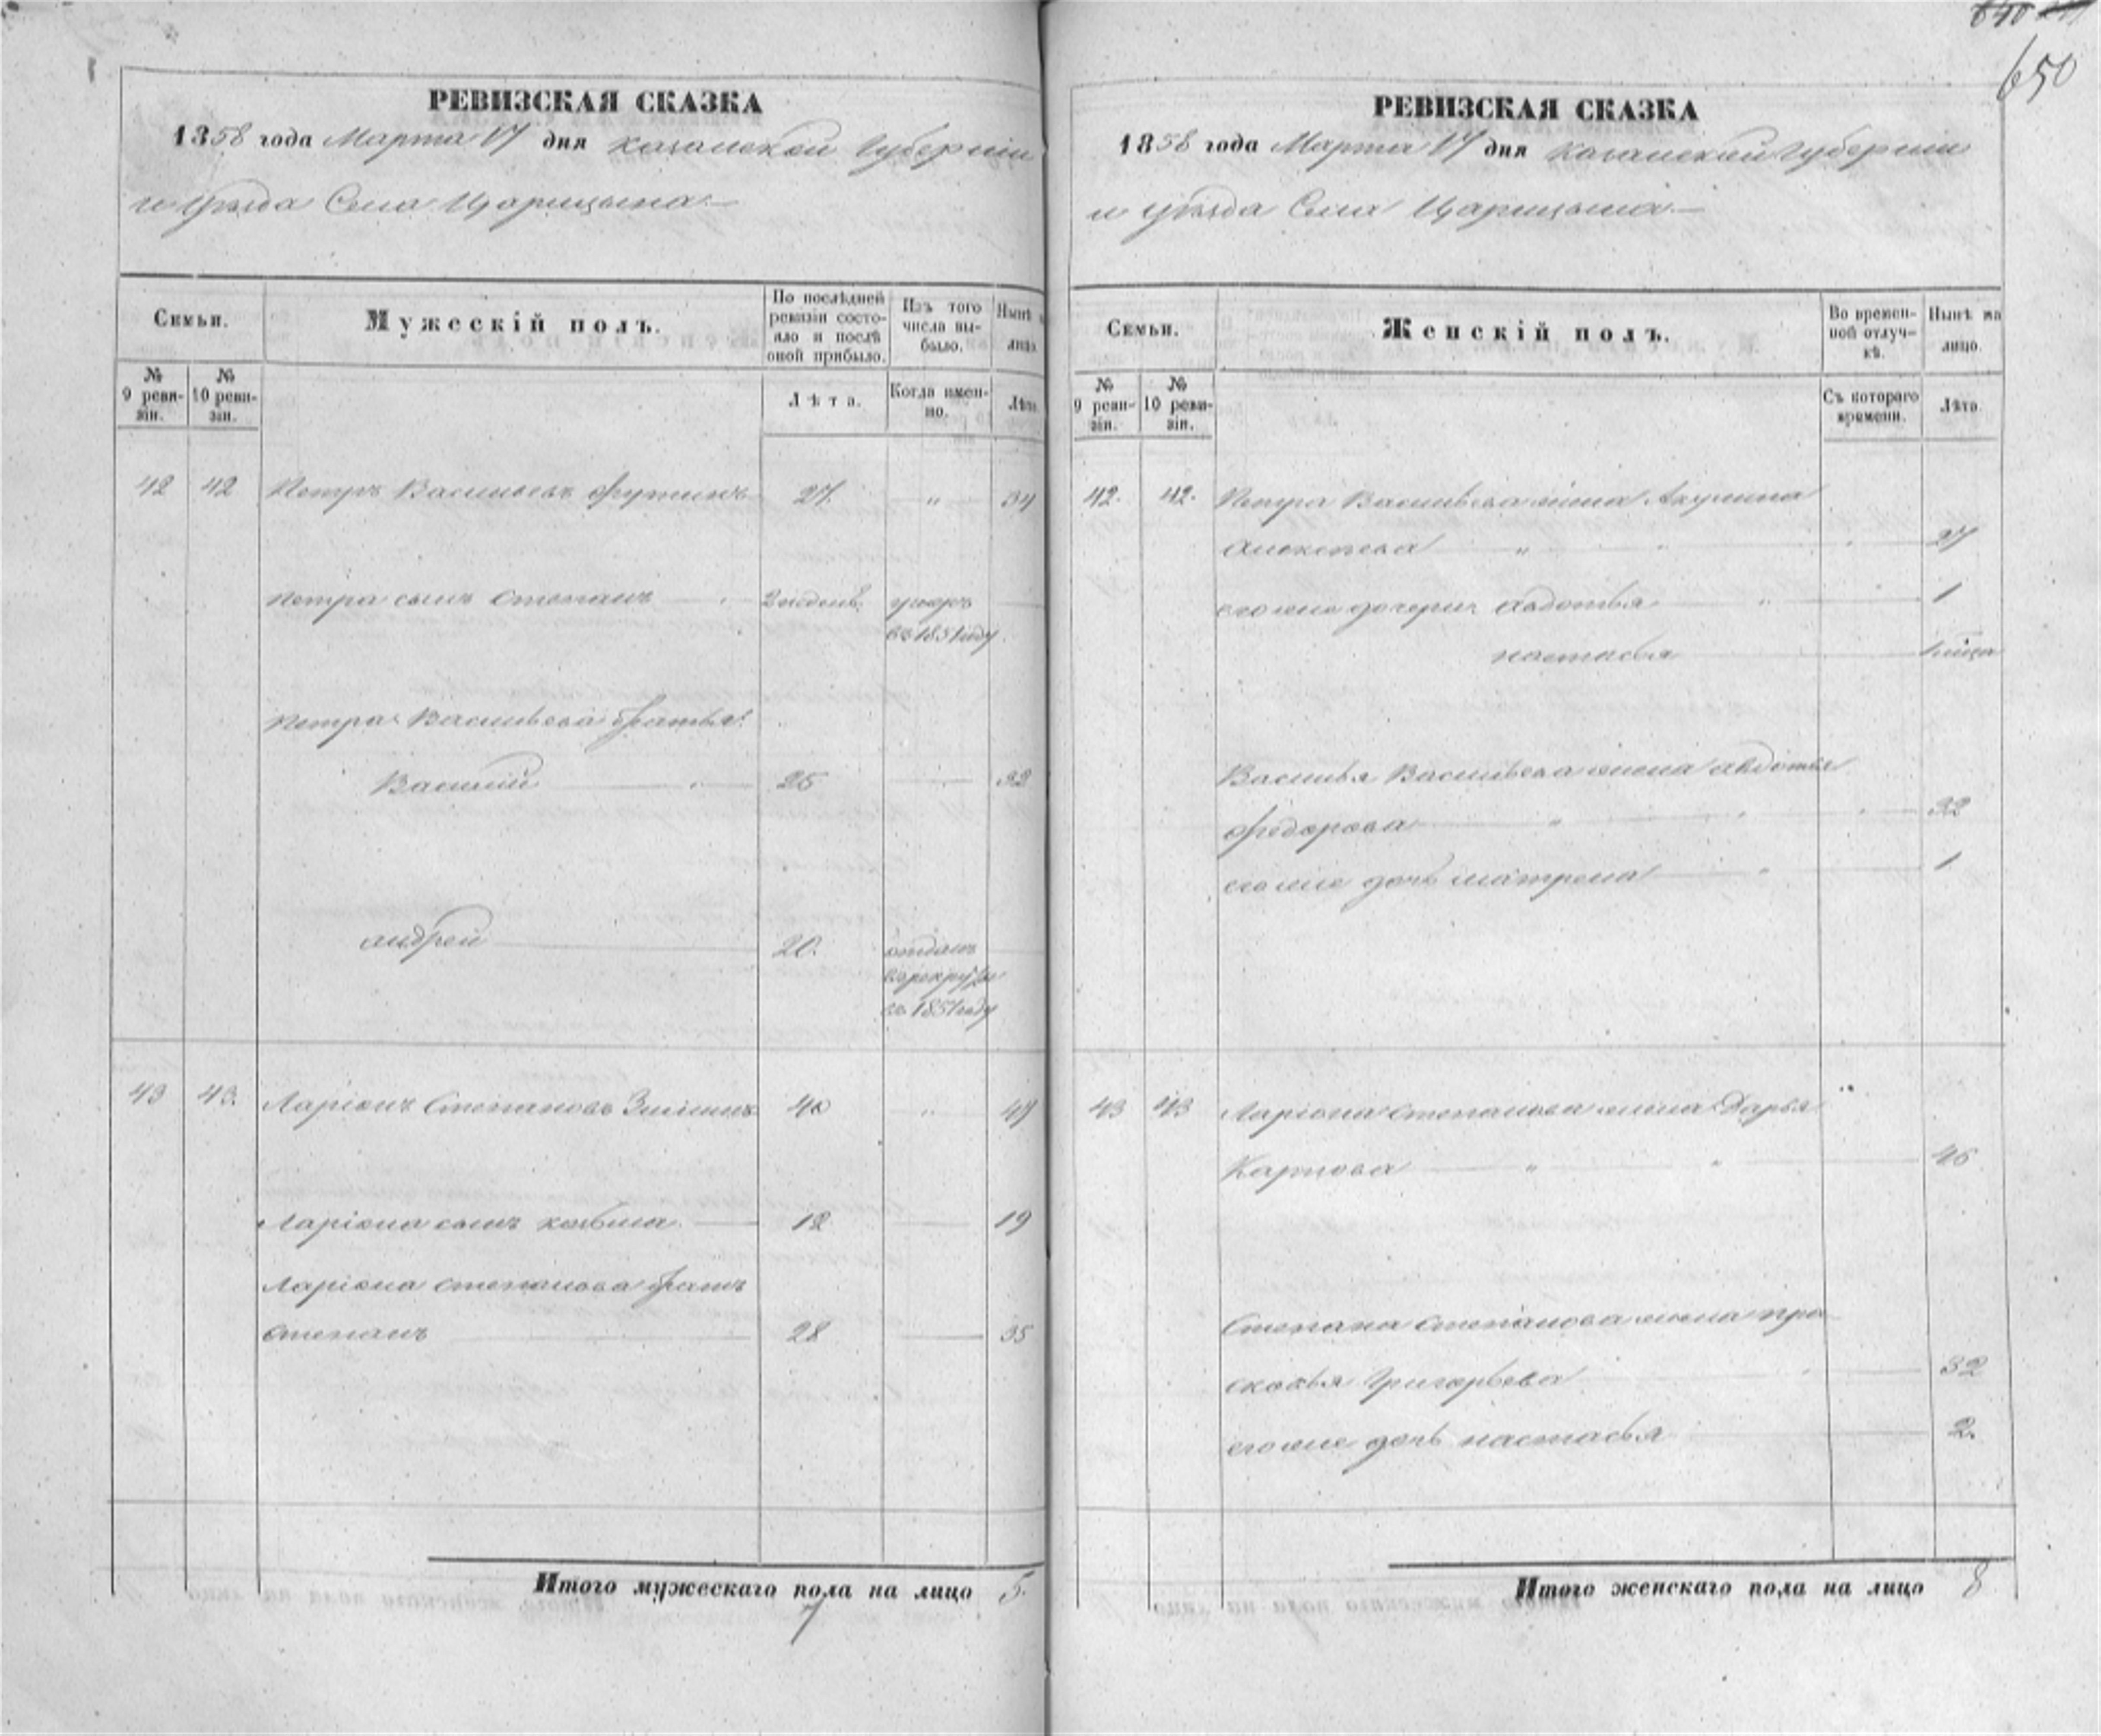 640
650
РЕВИЗСКАЯ СКАЗКА
1858 года Марта 17 дня Казанской Губерніи
и уѣзда Села Царицына
Семьи.
Мужескій полъ.
По послѣдней ревизіи состояло и послѣ оной прибыло.
Изъ того числа выбыло.
Нынѣ на лицо.
№ 9 ревизіи.
№ 10 ревизіи.
Лѣта.
Когда именно.
Лѣта.
42 42 Петръ Васильевъ 27 " 34
Петра сынъ Степанъ 2 недель умеръ
въ 1851 году
Петра Васильева братья:
Василій 25 32
Андрей 20. отданъ
въ рекруты
въ 1851 году
43 43. Ларіонъ Степановъ Зиминъ 40 " 47
Ларіона сынъ Козьма 12 19
Ларіона Степанова братъ
Степанъ 28 35
Итого мужескаго пола на лицо 5.
7
РЕВИЗСКАЯ СКАЗКА
1858 года Марта 17 дня Казанской Губерніи
и уѣзда Села Царицына
Семьи.
Женскій полъ.
Во временной отлучкѣ.
Нынѣ на лицо.
№ 9 ревизіи.
№ 10 ревизіи.
Съ котораго времени.
Лѣта.
42. 42. Петра Васильева жена Акулина
Алексѣева " 27
его же дочери Авдотья " 1
Настасья
Василья Васильева жена Авдотья
Федорова " " 32
его же дочь Матрена " 1
43 43 Ларіона Степанова жена Дарья
Карпова " " 46
Степана Степанова жена Пра
сковья Григорьева 32
его же дочь Настасья 2.
Итого женскаго пола на лицо 8